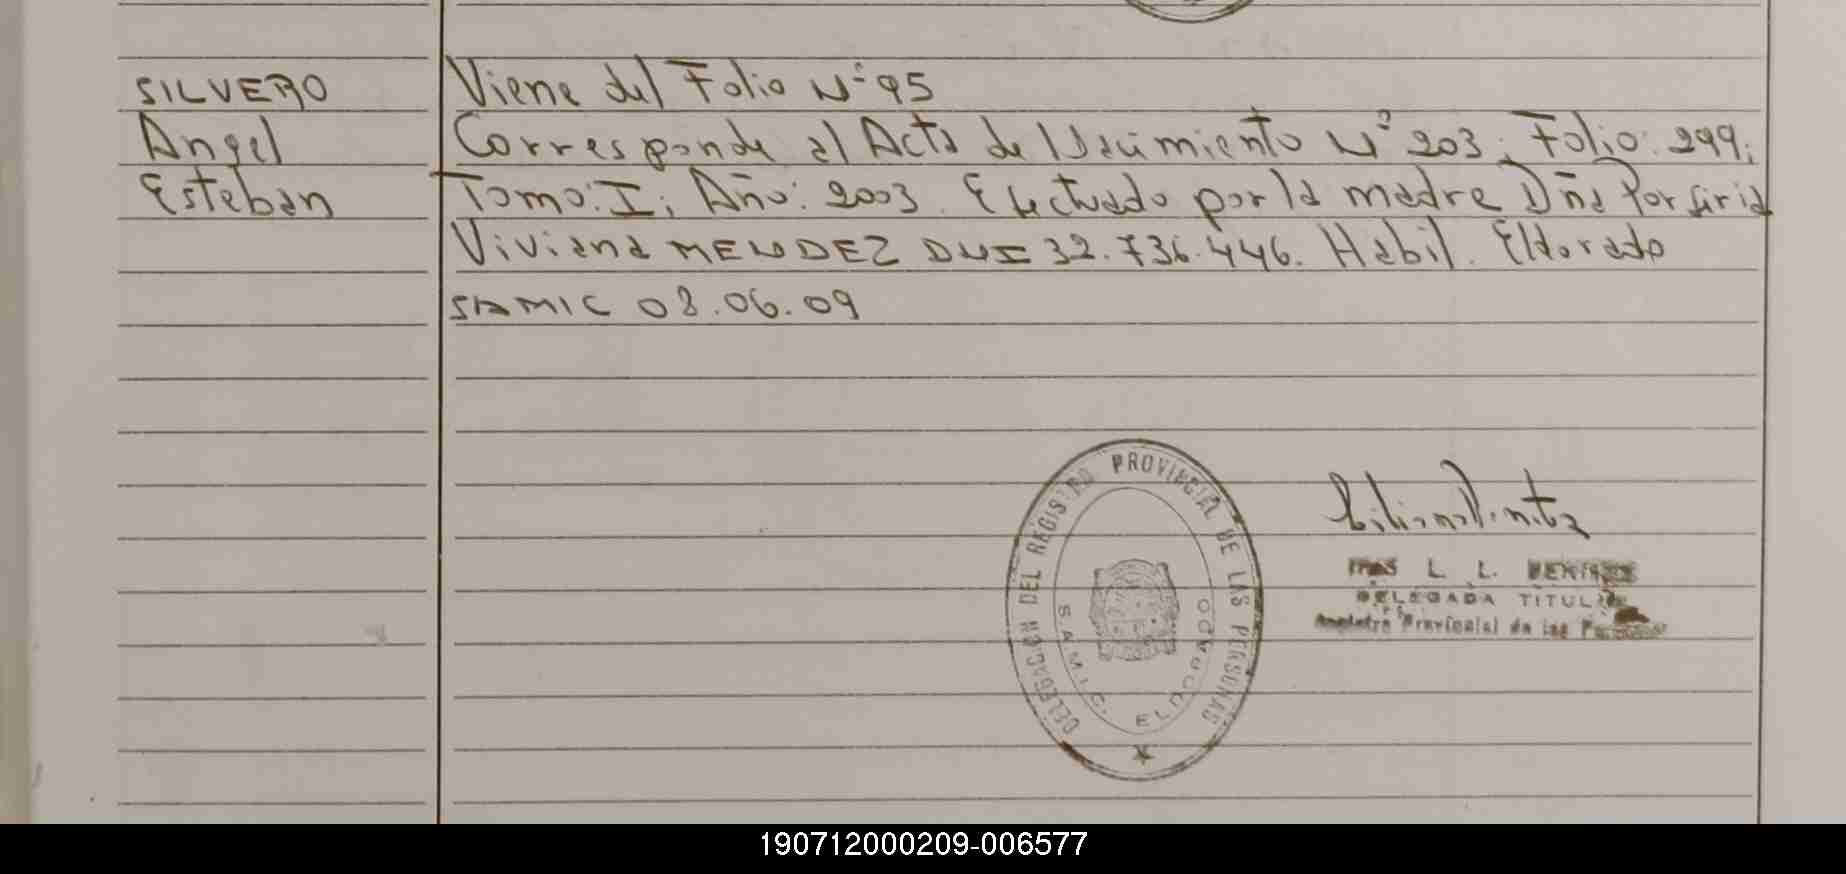 SILVERO
Angel
Esteban
Viene del Folio Nº 95
Corresponde al Acta de Nacimiento Nº 203; Folio: 299;
Tomo: I; Año: 2003. Efectuado por la madre Dña Porfiria
Viviana MENDEZ DNI 32.736.446. Habil. Eldorado
SAMIC 08.06.09
DELEGACION DEL REGISTRO PROVINCIAL DE LAS PERSONAS
S.A.M.I.C. ELDORADO
L. L.
DELEGADA TITULAR
Registro Provincial de las
190712000209-006577